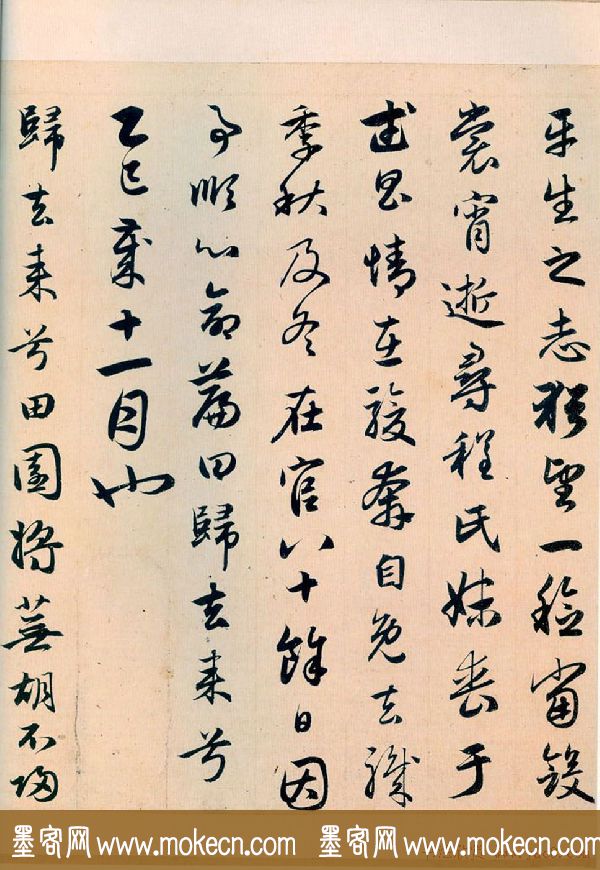 平生之志猶望一稔當斂
裳宵逝尋程氏妹喪于
武昌情在駿奔自免去職
季秋及冬在官八十餘日因
事順心命篇曰歸去来兮
乙巳歲十一月也
歸去来兮田園將蕪胡不歸
墨客网 www.mokecn.com 墨客网 www.mokecn.com